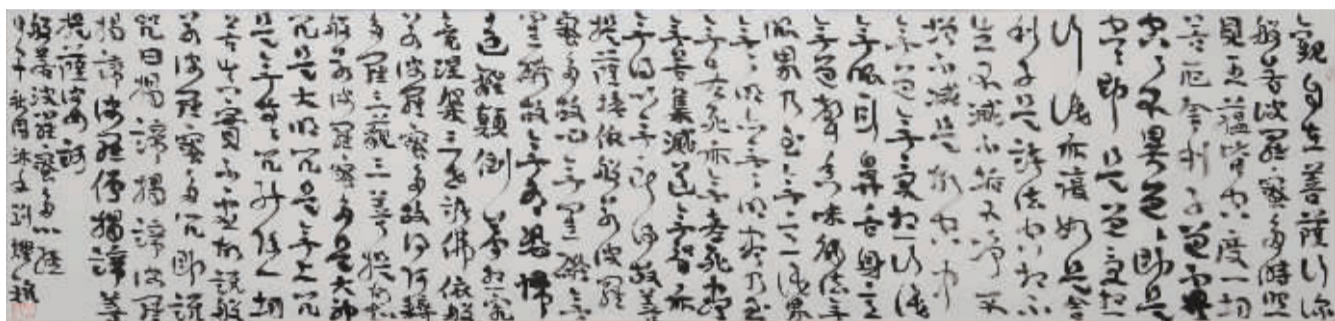 觀自在菩薩行深
般若波羅蜜多時照
見五蘊皆空度一切
苦厄舍利子色不異
空空不異色色即是
空空即是色受想
行識亦復如是舍
利子是諸法空相不
生不滅不垢不淨不
增不減是故空中
無色無受想行識
無眼耳鼻舌身意
無色聲香味觸法無
眼界乃至無意識界
無無明亦無無明盡乃至
無老死亦無老死盡
無苦集滅道無智亦
無得以無所得故菩
提薩埵依般若波羅
蜜多故心無罣礙無
罣礙故無有恐怖
遠離顛倒夢想究
竟涅槃三世諸佛依般
若波羅蜜多故得阿耨
多羅三藐三菩提故知
般若波羅蜜多是大神
咒是大明咒是無上咒
是無等等咒能除一切
苦真實不虛故說般
若波羅蜜多咒即說
咒曰揭諦揭諦波羅
揭諦波羅僧揭諦菩
提薩婆訶
般若波羅蜜多心經